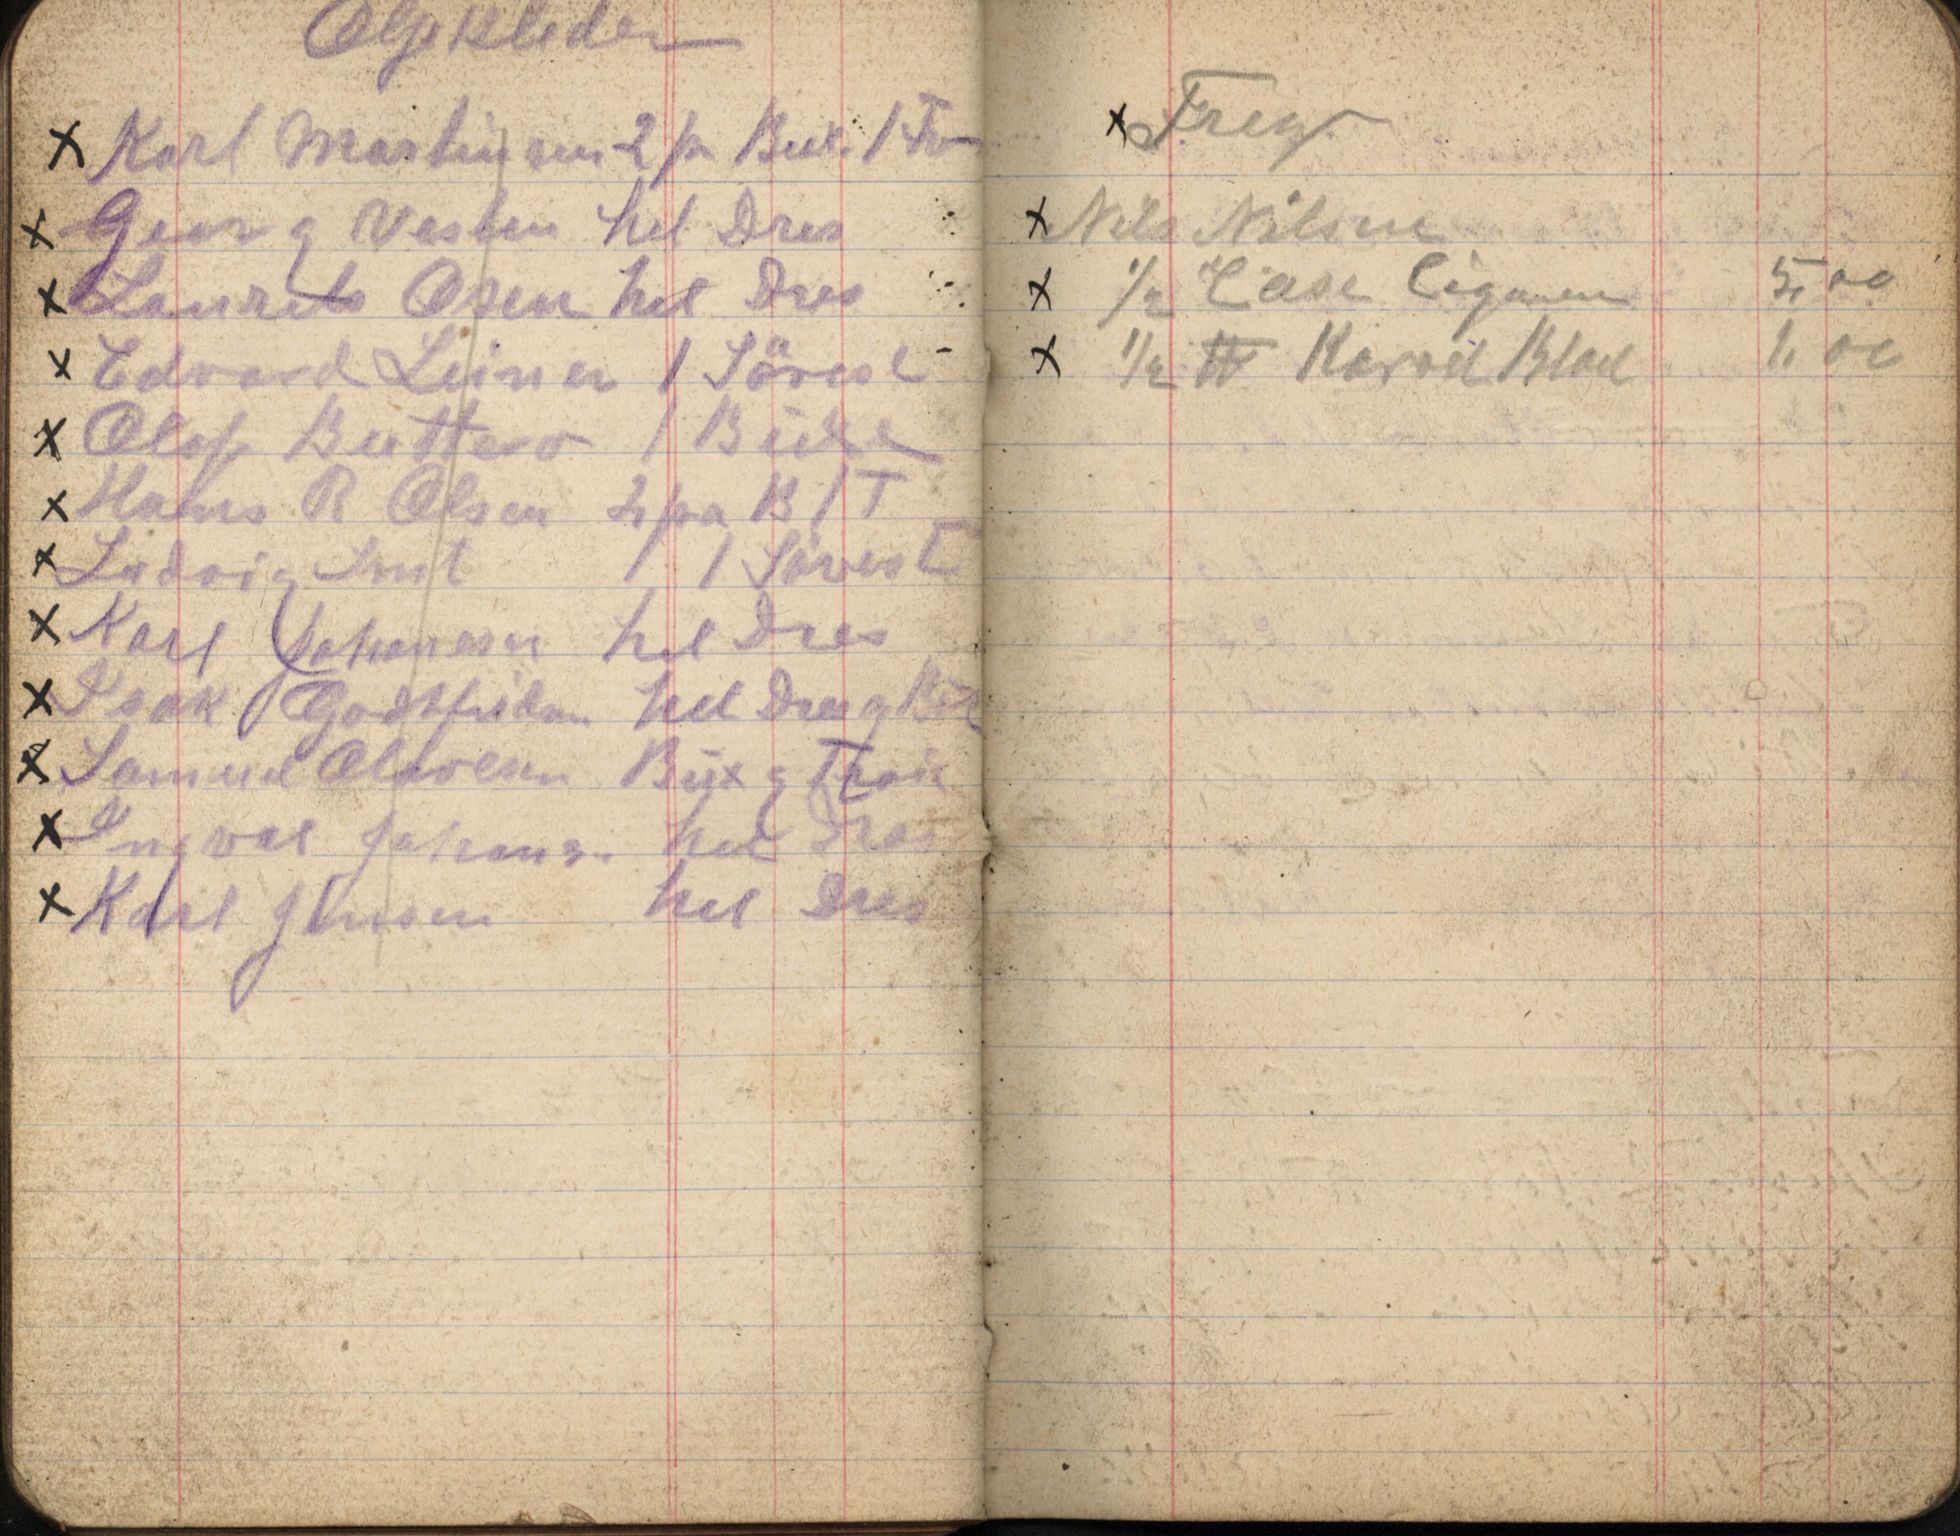 Oljekleder
x Karl Martinsen 2 pa Bux. 1 Trø
x Georg Vesten hel Dres
x Laurets Olsen hel Dres
x Edvard Leiner 1 Sövest
x Olaf Buttero 1 Buxe
x Hans R Olsen 2 pa B 1 T
x Ludvig 1 Sövest
x Karl Johansen hel Dres
x Isak Godtfredsen hel Dres g Bux
x Samuel Olavesen Bux g Troie
x Ingval Johans. hel Dres
x Karl Jensen hel Dres
x Frey
x Nils Nilsen
x 1/2 Case Cigaren 5,00
x 1/2 # Karvet Blad 1,00